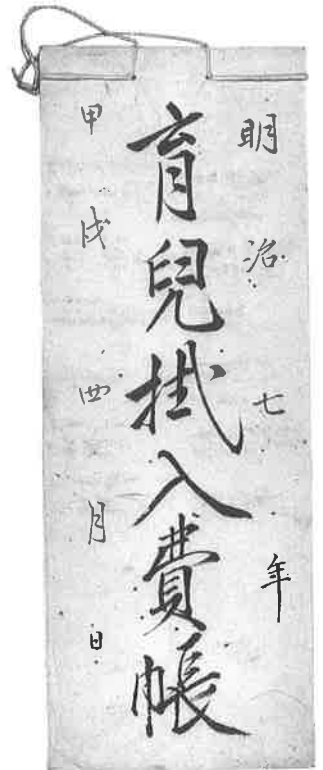 明治七年
育兒掛入費帳
甲戌四月日